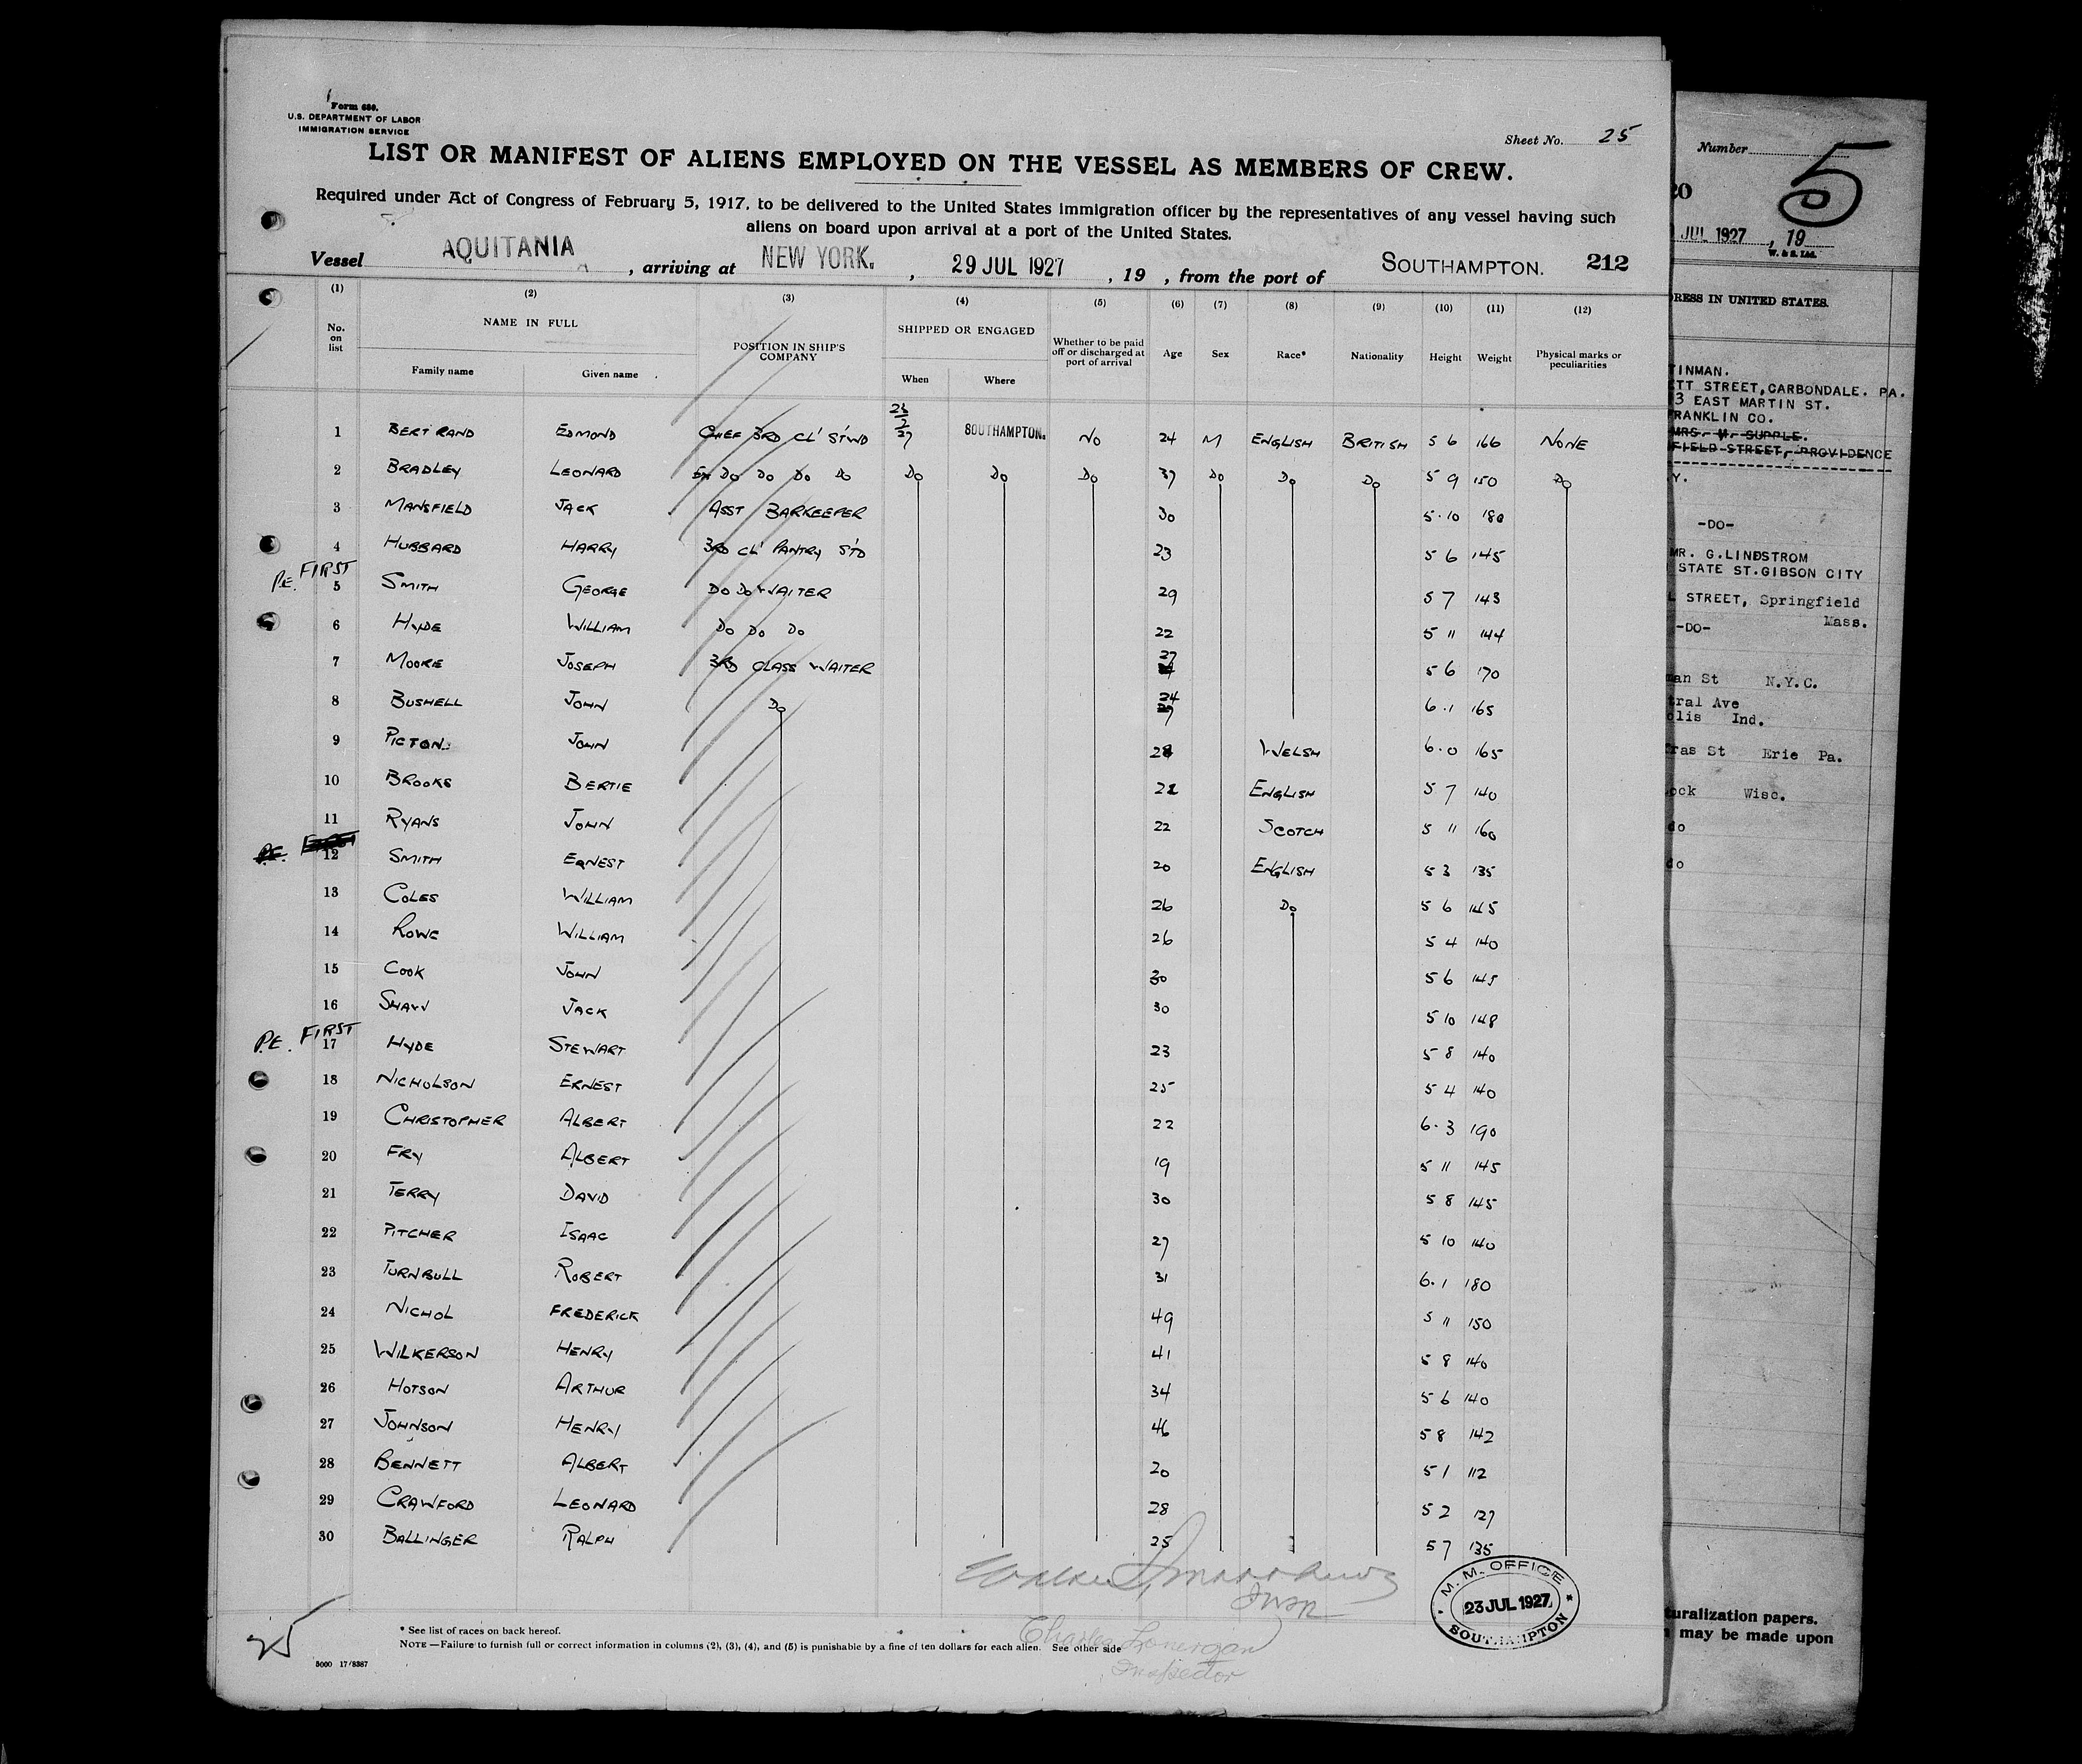 Form 680.
U.S. DEPARTMENT OF LABOR
IMMIGRATION SERVICE
Sheet No. 25
LIST OR MANIFEST OF ALIENS EMPLOYED ON THE VESSEL AS MEMBERS OF CREW.
Required under Act of Congress of February 5, 1917, to be delivered to the United States immigration officer by the representatives of any vessel having such
aliens on board upon arrival at a port of the United States.
Vessel AQUITANIA , arriving at NEW YORK. , 29 JUL 1927 , 19 , from the port of SOUTHAMPTON. 212
(1) (2) (3) (4) (5) (6) (7) (8) (9) (10) (11) (12)
No. on list NAME IN FULL POSITION IN SHIP'S COMPANY SHIPPED OR ENGAGED Whether to be paid off or discharged at port of arrival Age Sex Race* Nationality Height Weight Physical marks or peculiarities
Family name Given name When Where
1 BERTRAND EDMOND CHEF 3RD CL' ST'WD 23/7/27 SOUTHAMPTON. NO 24 M ENGLISH BRITISH 5 6 166 NONE
2 BRADLEY LEONARD DO DO DO DO DO DO DO 37 DO DO DO 5 9 150 DO
3 MANSFIELD JACK ASST BARKEEPER 30 5.10 180
4 HUBBARD HARRY 3RD CL' PANTRY ST'D 23 5 6 145
P.E. FIRST
5 SMITH GEORGE DO DO WAITER 29 5 7 143
6 HYDE WILLIAM DO DO DO 22 5 11 144
7 MOORE JOSEPH 3RD CLASS WAITER 27 5 6 170
8 BUSHELL JOHN DO 24 6.1 165
9 PICTON JOHN 28 WELSH 6.0 165
10 BROOKS BERTIE 22 ENGLISH 5 7 140
11 RYANS JOHN 22 SCOTCH 5 11 160
P.E.
12 SMITH ERNEST 20 ENGLISH 5 3 135
13 COLES WILLIAM 26 DO 5 6 145
14 ROWE WILLIAM 26 5 4 140
15 COOK JOHN 30 5 6 145
16 SHAW JACK 30 5 10 148
P.E. FIRST
17 HYDE STEWART 23 5 8 140
18 NICHOLSON ERNEST 25 5 4 140
19 CHRISTOPHER ALBERT 22 6.3 190
20 FRY ALBERT 19 5 11 145
21 TERRY DAVID 30 5 8 145
22 PITCHER ISAAC 27 5 10 140
23 TURNBULL ROBERT 31 6.1 180
24 NICHOL FREDERICK 49 5 11 150
25 WILKERSON HENRY 41 5 8 140
26 HOTSON ARTHUR 34 5 6 140
27 JOHNSON HENRY 46 5 8 142
28 BENNETT ALBERT 20 5 1 112
29 CRAWFORD LEONARD 28 5 2 127
30 BALLINGER RALPH 25 5 7 135
M.M. OFFICE
23 JUL 1927
SOUTHAMPTON
25
* See list of races on back hereof.
NOTE—Failure to furnish full or correct information in columns (2), (3), (4), and (5) is punishable by a fine of ten dollars for each alien. See other side
Charles Lonergan
Inspector
5000 17/8387
Number 5
20
JUL 1927 , 19
W. & S. Ltd.
RESS IN UNITED STATES.
TINMAN.
ETT STREET, CARBONDALE. PA.
3 EAST MARTIN ST.
RANKLIN CO.
MRS. M. SUPPLE.
FIELD STREET, PROVIDENCE
Y.
-DO-
MR. G. LINDSTROM
STATE ST. GIBSON CITY
L STREET, Springfield
Mass.
-DO-
man St N.Y.C.
tral Ave
olis Ind.
ras St Erie Pa.
ock Wisc.
do
do
turalization papers.
may be made upon